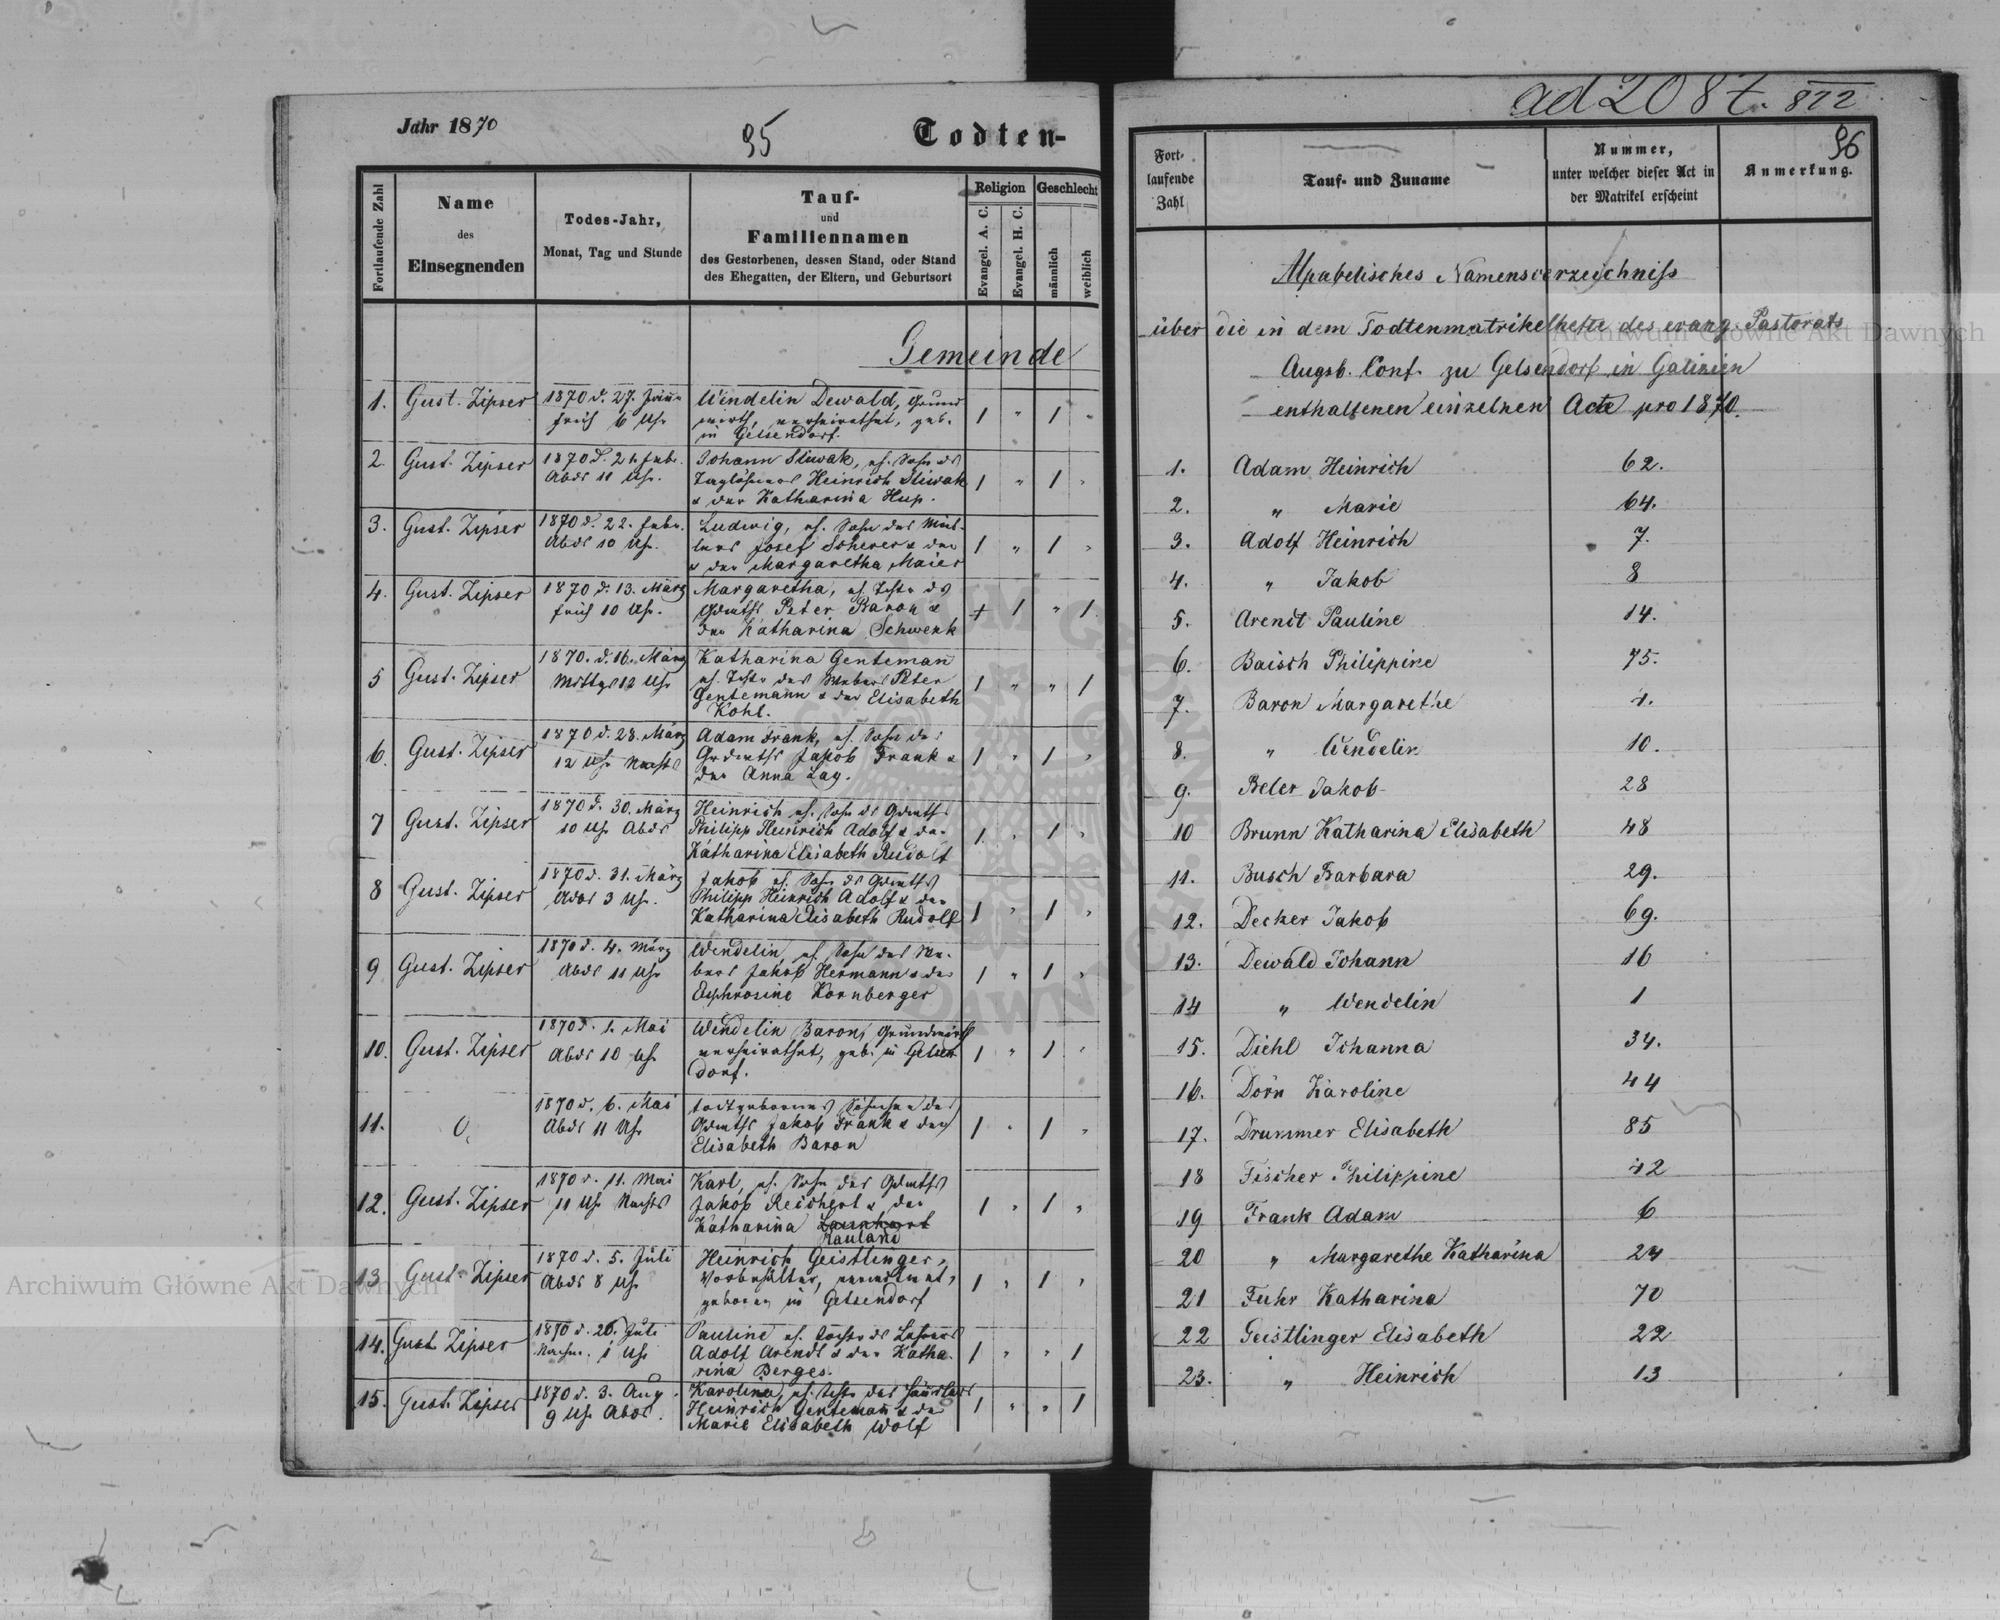 Jahr 1870
95
Todten-
Fortlaufende Zahl
Name
des
Einsegnenden
Todes-Jahr,
Monat, Tag und Stunde
Tauf-
und
Familiennamen
des Gestorbenen, dessen Stand, oder Stand
des Ehegatten, der Eltern, und Geburtsort
Religion
Evangel. A. C.
Evangel. H. C.
Geschlecht
männlich
weiblich
Gemeinde
1. Gust. Zipser 1870 d. 27. Jänn. Wendelin Dewald, Grund 1 " 1 "
früh 6 Uhr wirth, verheirathet, geb.
in Gelsendorf.
2. Gust. Zipser 1870 d. 21. Febr. Johann Sliwak, eh. Sohn des 1 " 1 "
Abds 11 Uhr. Taglöhners Heinrich Sliwak
& der Katharina Hup.
3. Gust. Zipser 1870 d. 22. Febr. Ludwig, eh. Sohn des Mül- 1 " 1 "
Abds 10 Uhr. lers Josef Scherer & der
& der Margaretha Maier
4. Gust. Zipser 1870 d. 13. März Margaretha, eh. Tocht. ds 1 " 1
früh 10 Uhr. Gdwths Peter Baron &
der Katharina Schwenk
5 Gust. Zipser 1870. d. 16. März Katharina Gentemañ 1 " " 1
Mittgs 12 Uhr eh. Tocht. des Webers Peter
Gentemann & der Elisabeth
Kohl.
6. Gust. Zipser 1870 d. 28. März Adam Frank, eh. Sohn des 1 " 1 "
12 Uhr Nachts Grdwths Jakob Frank &
der Anna Lay.
7 Gust. Zipser 1870 d. 30. März Heinrich eh. Sohn ds Gdwths 1 " 1 "
10 Uhr Abds Philipp Heinrich Adolf & der
Katharina Elisabeth Rudolf
8 Gust. Zipser 1870 d. 31. März Jakob eh. Sohn ds Gdwths 1 " 1 "
Abds 3 Uhr. Philipp Heinrich Adolf & der
Katharina Elisabeth Rudolf
9 Gust. Zipser 1870 d. 4. März Wendelin, eh. Sohn des We- 1 " 1 "
Abds 11 Uhr bers Jakob Hermann & der
Euphrosine Kornberger
10. Gust. Zipser 1870 d. 1. Mai Wendelin Baron, Grundwirth 1 " 1 "
Abds 10 Uhr verheirathet, geb. in Gelsen
dorf.
11. 0. 1870 d. 6. Mai todtgeborenes Söhnchen des 1 " 1 "
Abds 11 Uhr Gdwths Jakob Frank & der
Elisabeth Baron
12. Gust. Zipser 1870 d. 11. Mai Karl, eh. Sohn des Gdwths 1 " 1 "
11 Uhr Nachts Jakob Reichert & der
Katharina
Rauland
13. Gust. Zipser 1870 d. 5. Juli Heinrich Geistlinger, 1 " 1 "
Abds 8 Uhr Vorbehälter, verwitwet,
geboren in Gelsendorf
14. Gust Zipser 1870 d. 26. Juli Pauline eh. Tocht. ds Lehrers 1 " " 1
Nachm. 1 Uhr Adolf Arendt & der Katha-
rina Berges.
15. Gust. Zipser 1870 d. 3. Aug. Karolina, eh. Tocht. des Häuslers 1 " " 1
9 Uhr Abds. Heinrich Gentemañ & der
Marie Elisabeth Wolf
ad 2087. 872
96
Fort-
laufende
Zahl
Tauf- und Zuname
Nummer,
unter welcher dieser Act in
der Matrikel erscheint
Anmerkung.
Alpabetisches Namensverzeichniss
über die in dem Todtenmatrikelhefte des evang. Pastorats
Augsb. Conf. zu Gelsendorf in Galizien
enthaltenen einzelnen Acte pro 1870.
1. Adam Heinrich 62.
2. " Marie 64.
3. Adolf Heinrich 7.
4. " Jakob 8
5. Arendt Pauline 14.
6. Baisch Philippine 75.
7. Baron Margarethe 4.
8. " Wendelin 10.
9. Beler Jakob 28
10 Brunn Katharina Elisabeth 48
11. Busch Barbara 29.
12. Decker Jakob 69.
13. Dewald Johann 16
14 " Wendelin 1
15. Diehl Johanna 34.
16. Dorn Karoline 44
17. Drummer Elisabeth 85
18 Fischer Philippine 42
19 Frank Adam 6
20 " Margarethe Katharina 24
21 Fuhr Katharina 70
22 Geistlinger Elisabeth 22
23. " Heinrich 13
Archiwum Główne Akt Dawnych
Archiwum Główne Akt Dawnych